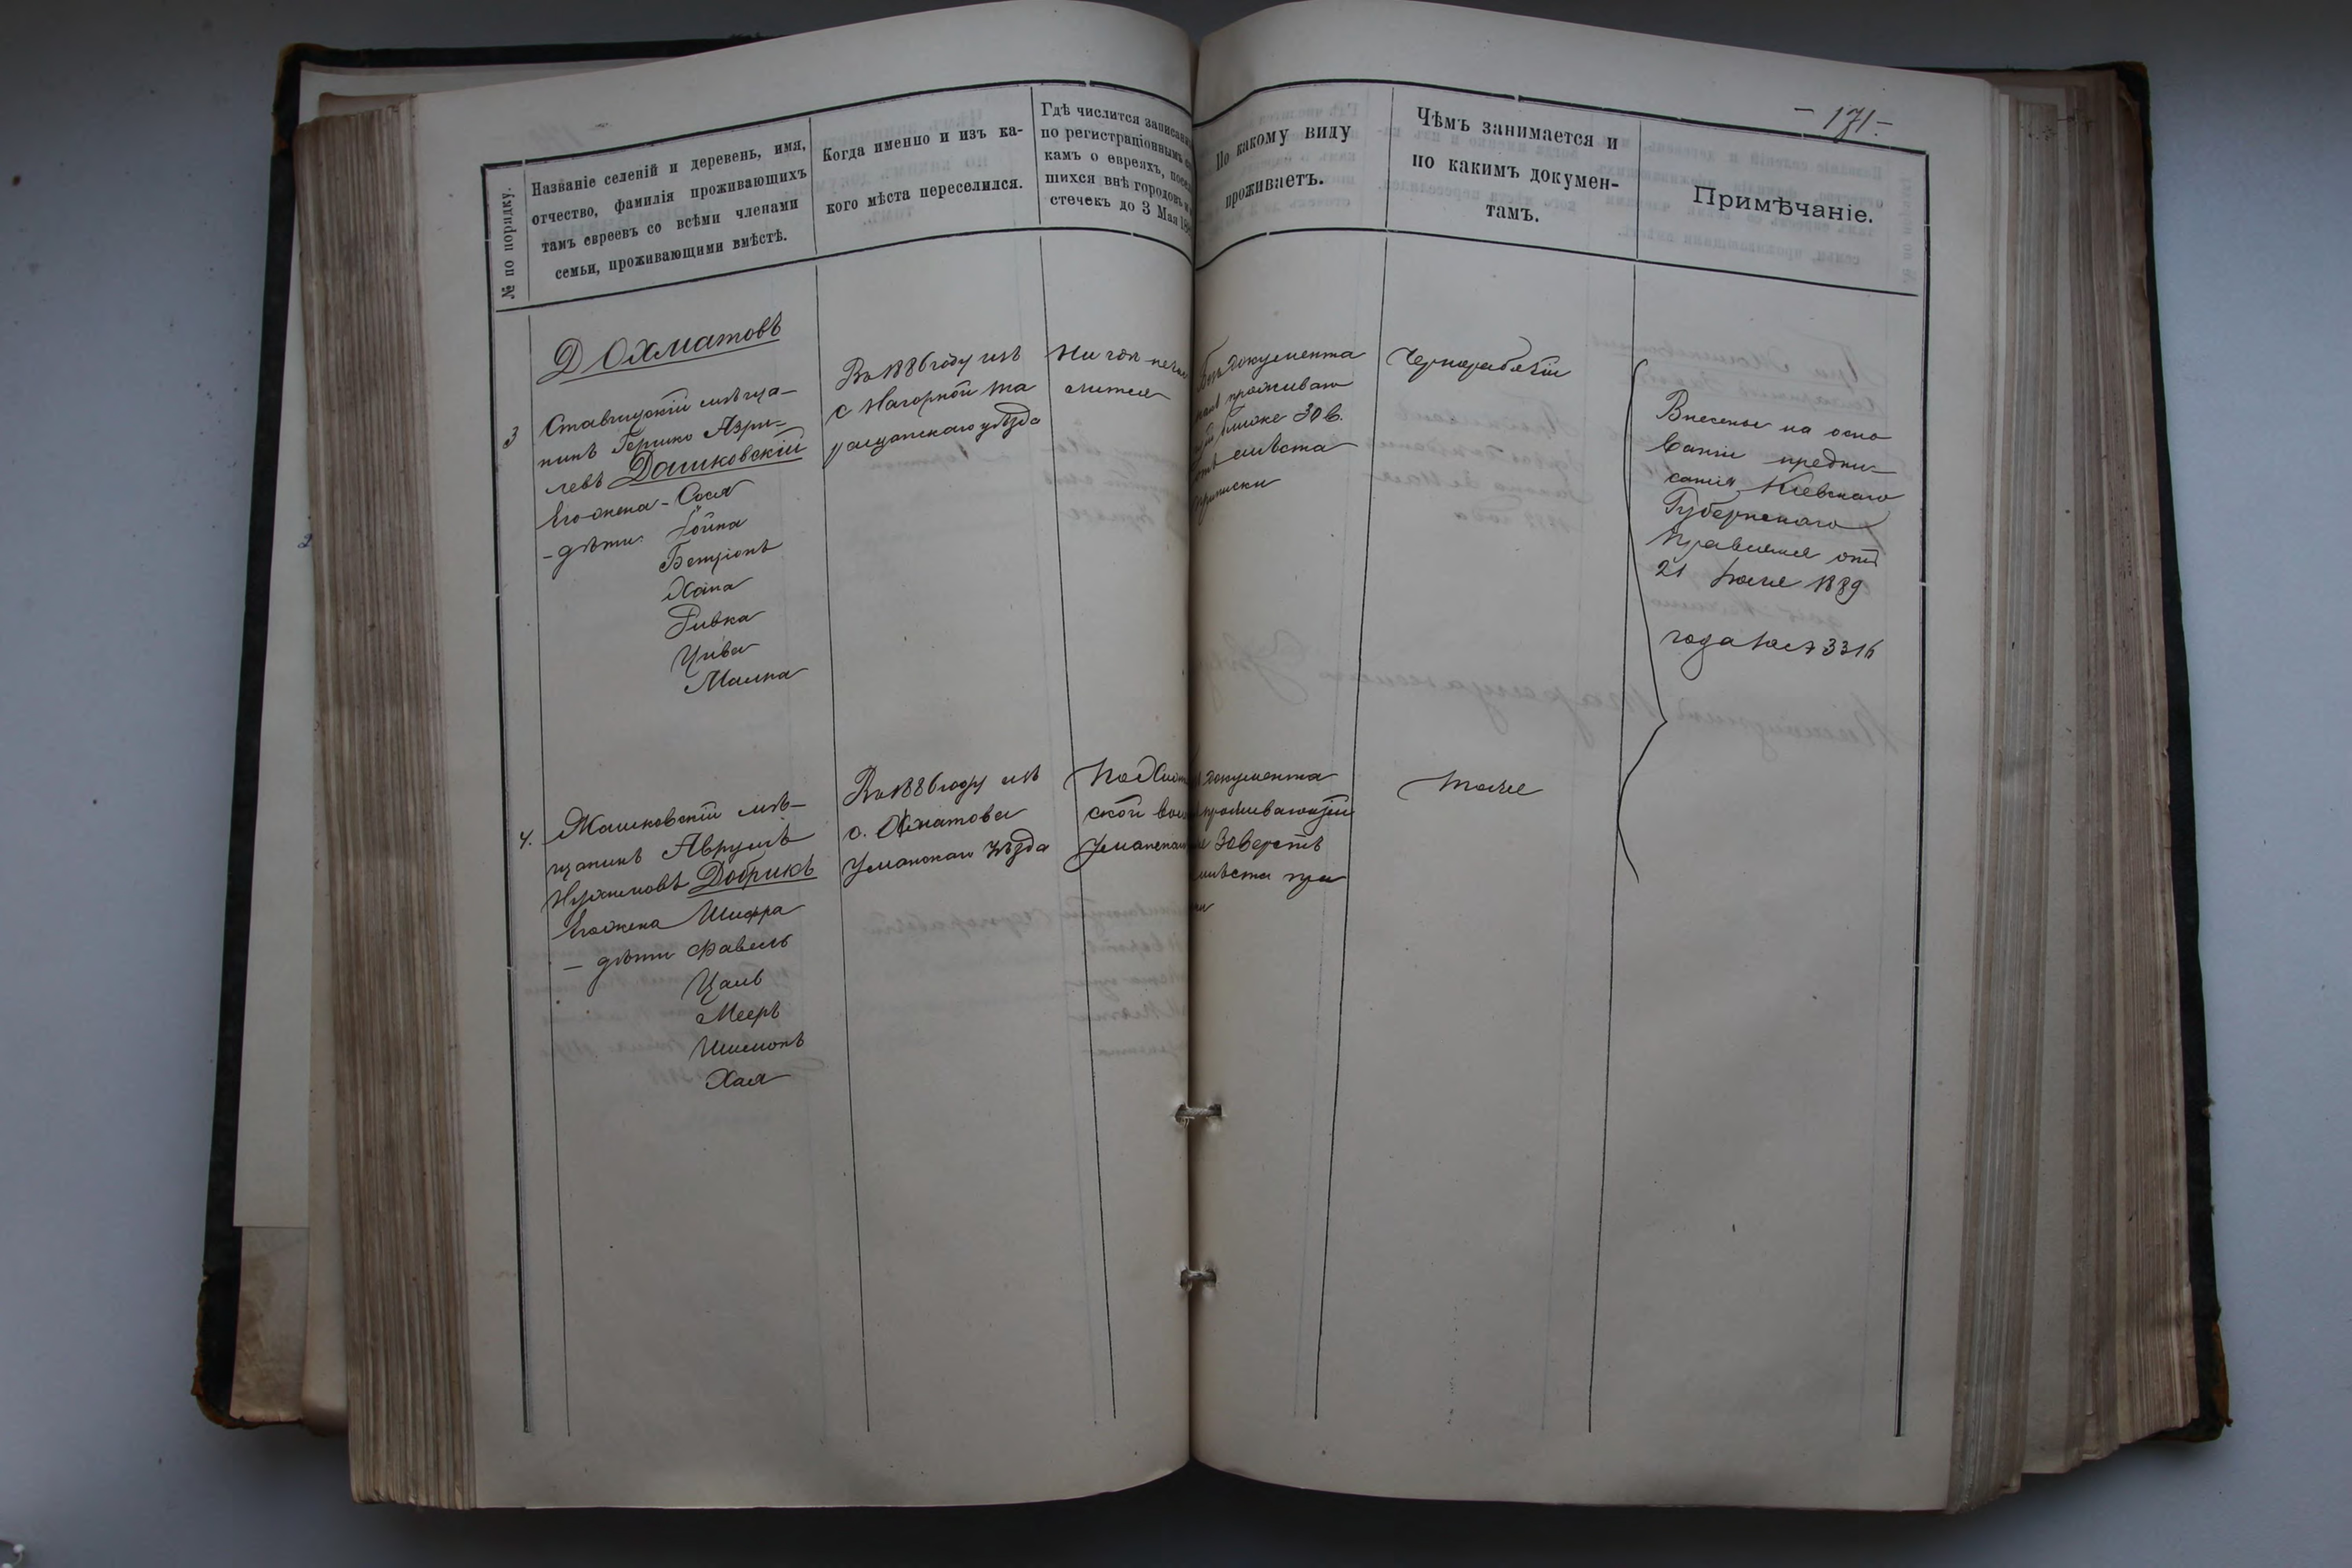 - 171 -
№ по порядку.
Названіе селеній и деревень, имя,
отчество, фамилія проживающихъ
тамъ евреевъ со всѣми членами
семьи, проживающими вмѣстѣ.
Когда именно и изъ ка-
кого мѣста переселился.
Гдѣ числится
по регистраціоннымъ
камъ о евреяхъ,
шихся внѣ городовъ и
стечекъ до 3 Мая
По какому виду
проживаетъ.
Чѣмъ занимается и
по какимъ докумен-
тамъ.
Примѣчаніе.
Д Охматовъ
3
Ставищскій мѣща-
нинъ Гершко Азри-
левъ Дашковскій
Его жена - Сося
- дѣти
Бенціонъ
Хана
Ривка
Цива
Малка
Въ 1886 году изъ
с Нагорной Та
ращанскаго уѣзда
Ни гдѣ не чи
слится
документа
проживаю
ближе 30 в.
отъ мѣста
приписки
Чернорабочій
Внесены на осно
ваніи предпи-
санія Кіевскаго
Губернскаго
Правленія отъ
21 Іюля 1889
года за № 3316
4.
Машковскій мѣ-
щанинъ Аврумъ
Нухимовъ Добрикъ
Его жена Шифра
- дѣти Файвель
Цаль
Мееръ
Шимонъ
Хая
Въ 1886 году изъ
с. Охматова
Уманскаго уѣзда
ской
документа
проживающій
30 верстъ
мѣста при
тоже